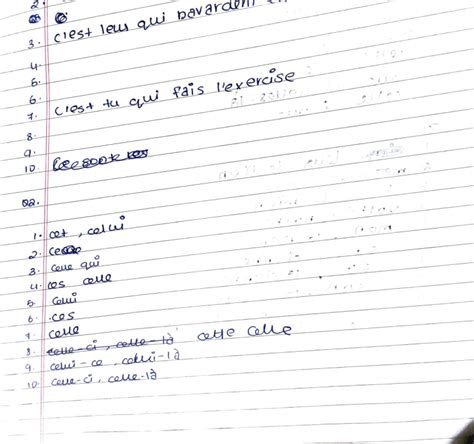 2.
3. c'est leus qui bavardent
4.
5.
6.
7. c'est tu qui fais l'exercise
8.
9.
10.
Q2.
1. cet, celui
2. ce
3. celle qui
4. ces celle
5 celui
6. ces
7 celle
8. celle-ci, celle-là cette celle
9 celui-ce, celui-là
10. celle-ci, celle-là